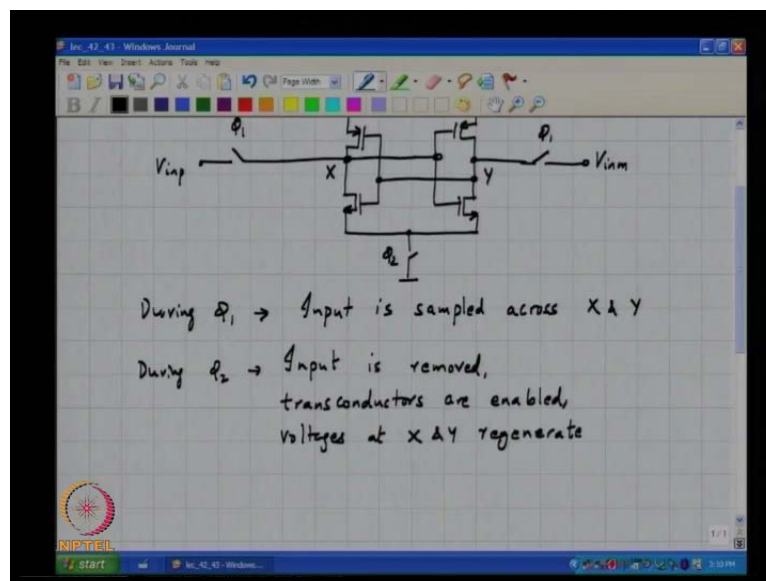 lec_42_43 - Windows Journal
File Edit View Insert Actions Tools Help
Page Width
B I
Φ1 Φ1
Vinp X Y Vinm
Φ2
During Φ1 → Input is sampled across X & Y
During Φ2 → Input is removed,
transconductors are enabled,
voltages at X & Y regenerate
1/1
NPTEL
start lec_42_43 - Windows... 3:33 PM